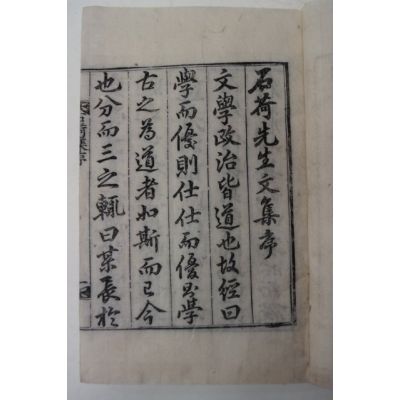 石荷先生文集序
文學政治皆道也故經曰
學而優則仕仕而優則學
古之為道者如斯而已今
也分而三之輒曰某長於